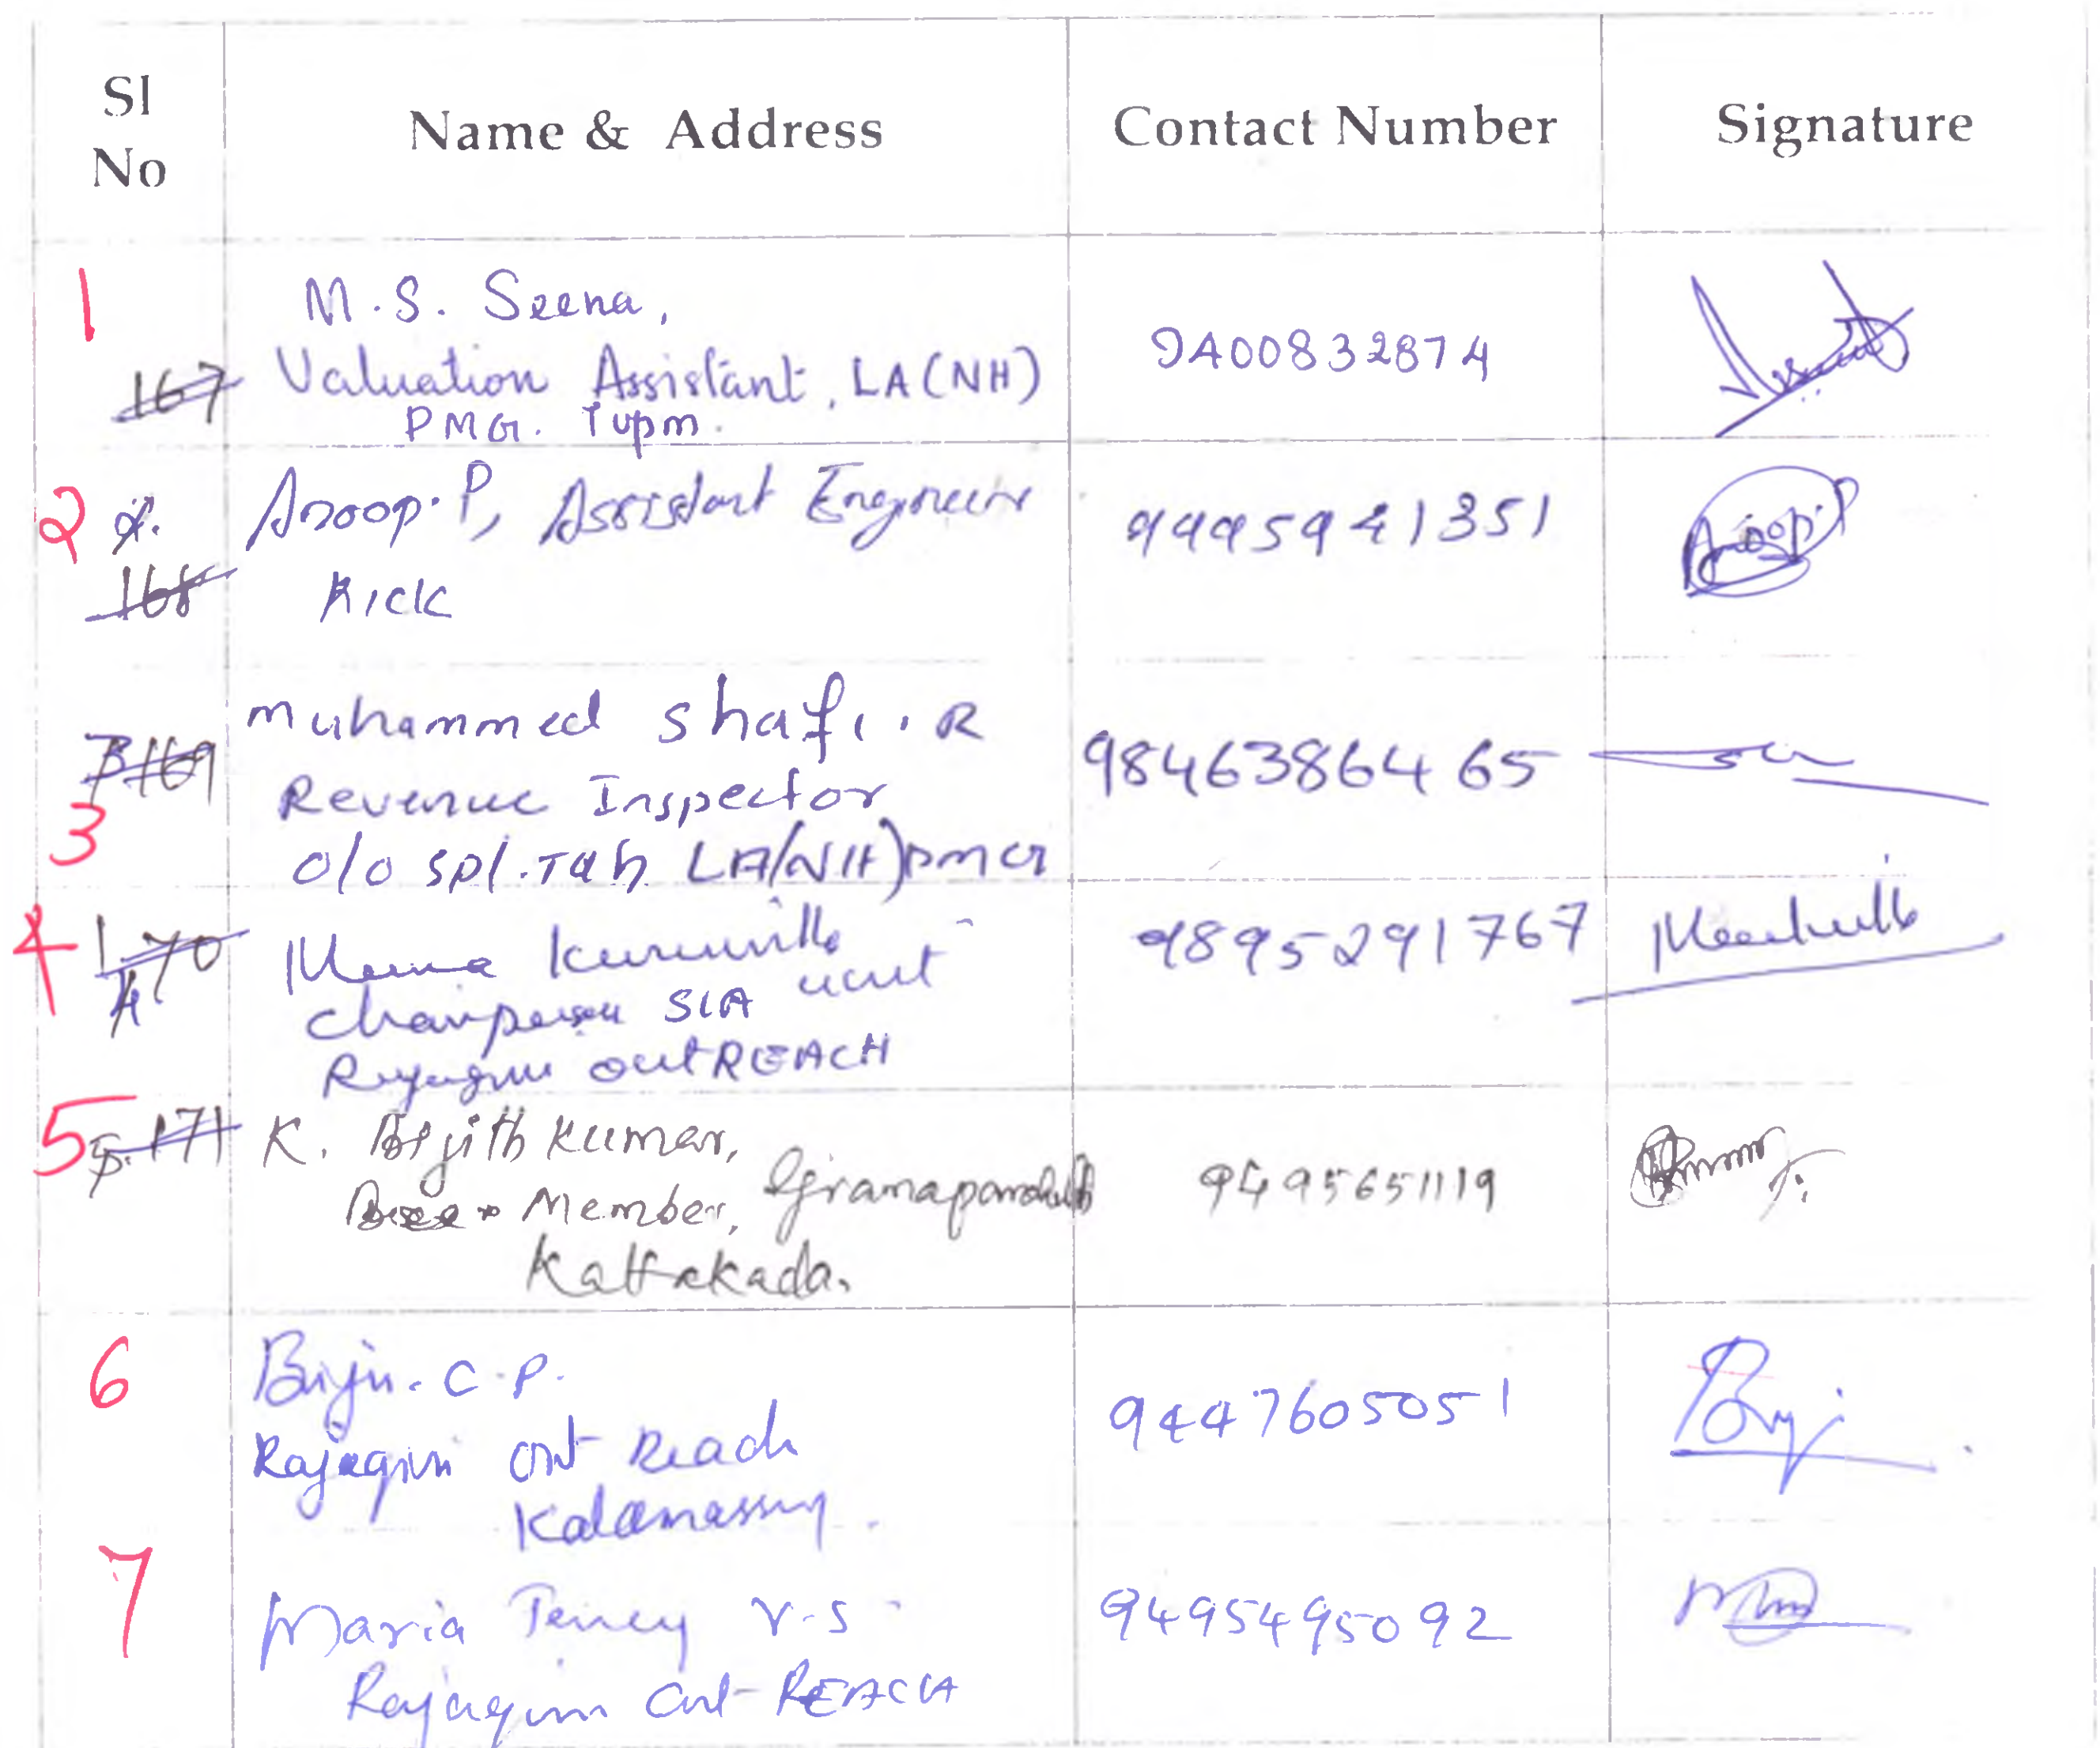 Sl No
Name & Address
Contact Number
Signature
1
167
M.S. Seena,
Valuation Assistant, LA(NH)
PMG. Tvpm.
9400832874
2
2.
168
Anoop.P, Assistant Engineer
KICK
9995941351
Anoop.P
3 169
3
Muhammed Shafi. R
Revenue Inspector
O/o Spl.Tah LA(NH)PMG
9846386465
4
170
4
Meena Kuruvilla
Chairperson SIA unit
Rajagiri outREACH
9895291767
5
5. 171
K. Kumar,
Member, Gramapanchayath
Kattakada.
9495651119
6
Biju. C.P.
Rajagiri Out Reach
Kalamassery.
9447605051
7
Maria Tency V.S
Rajagiri Out-REACH
9495495092